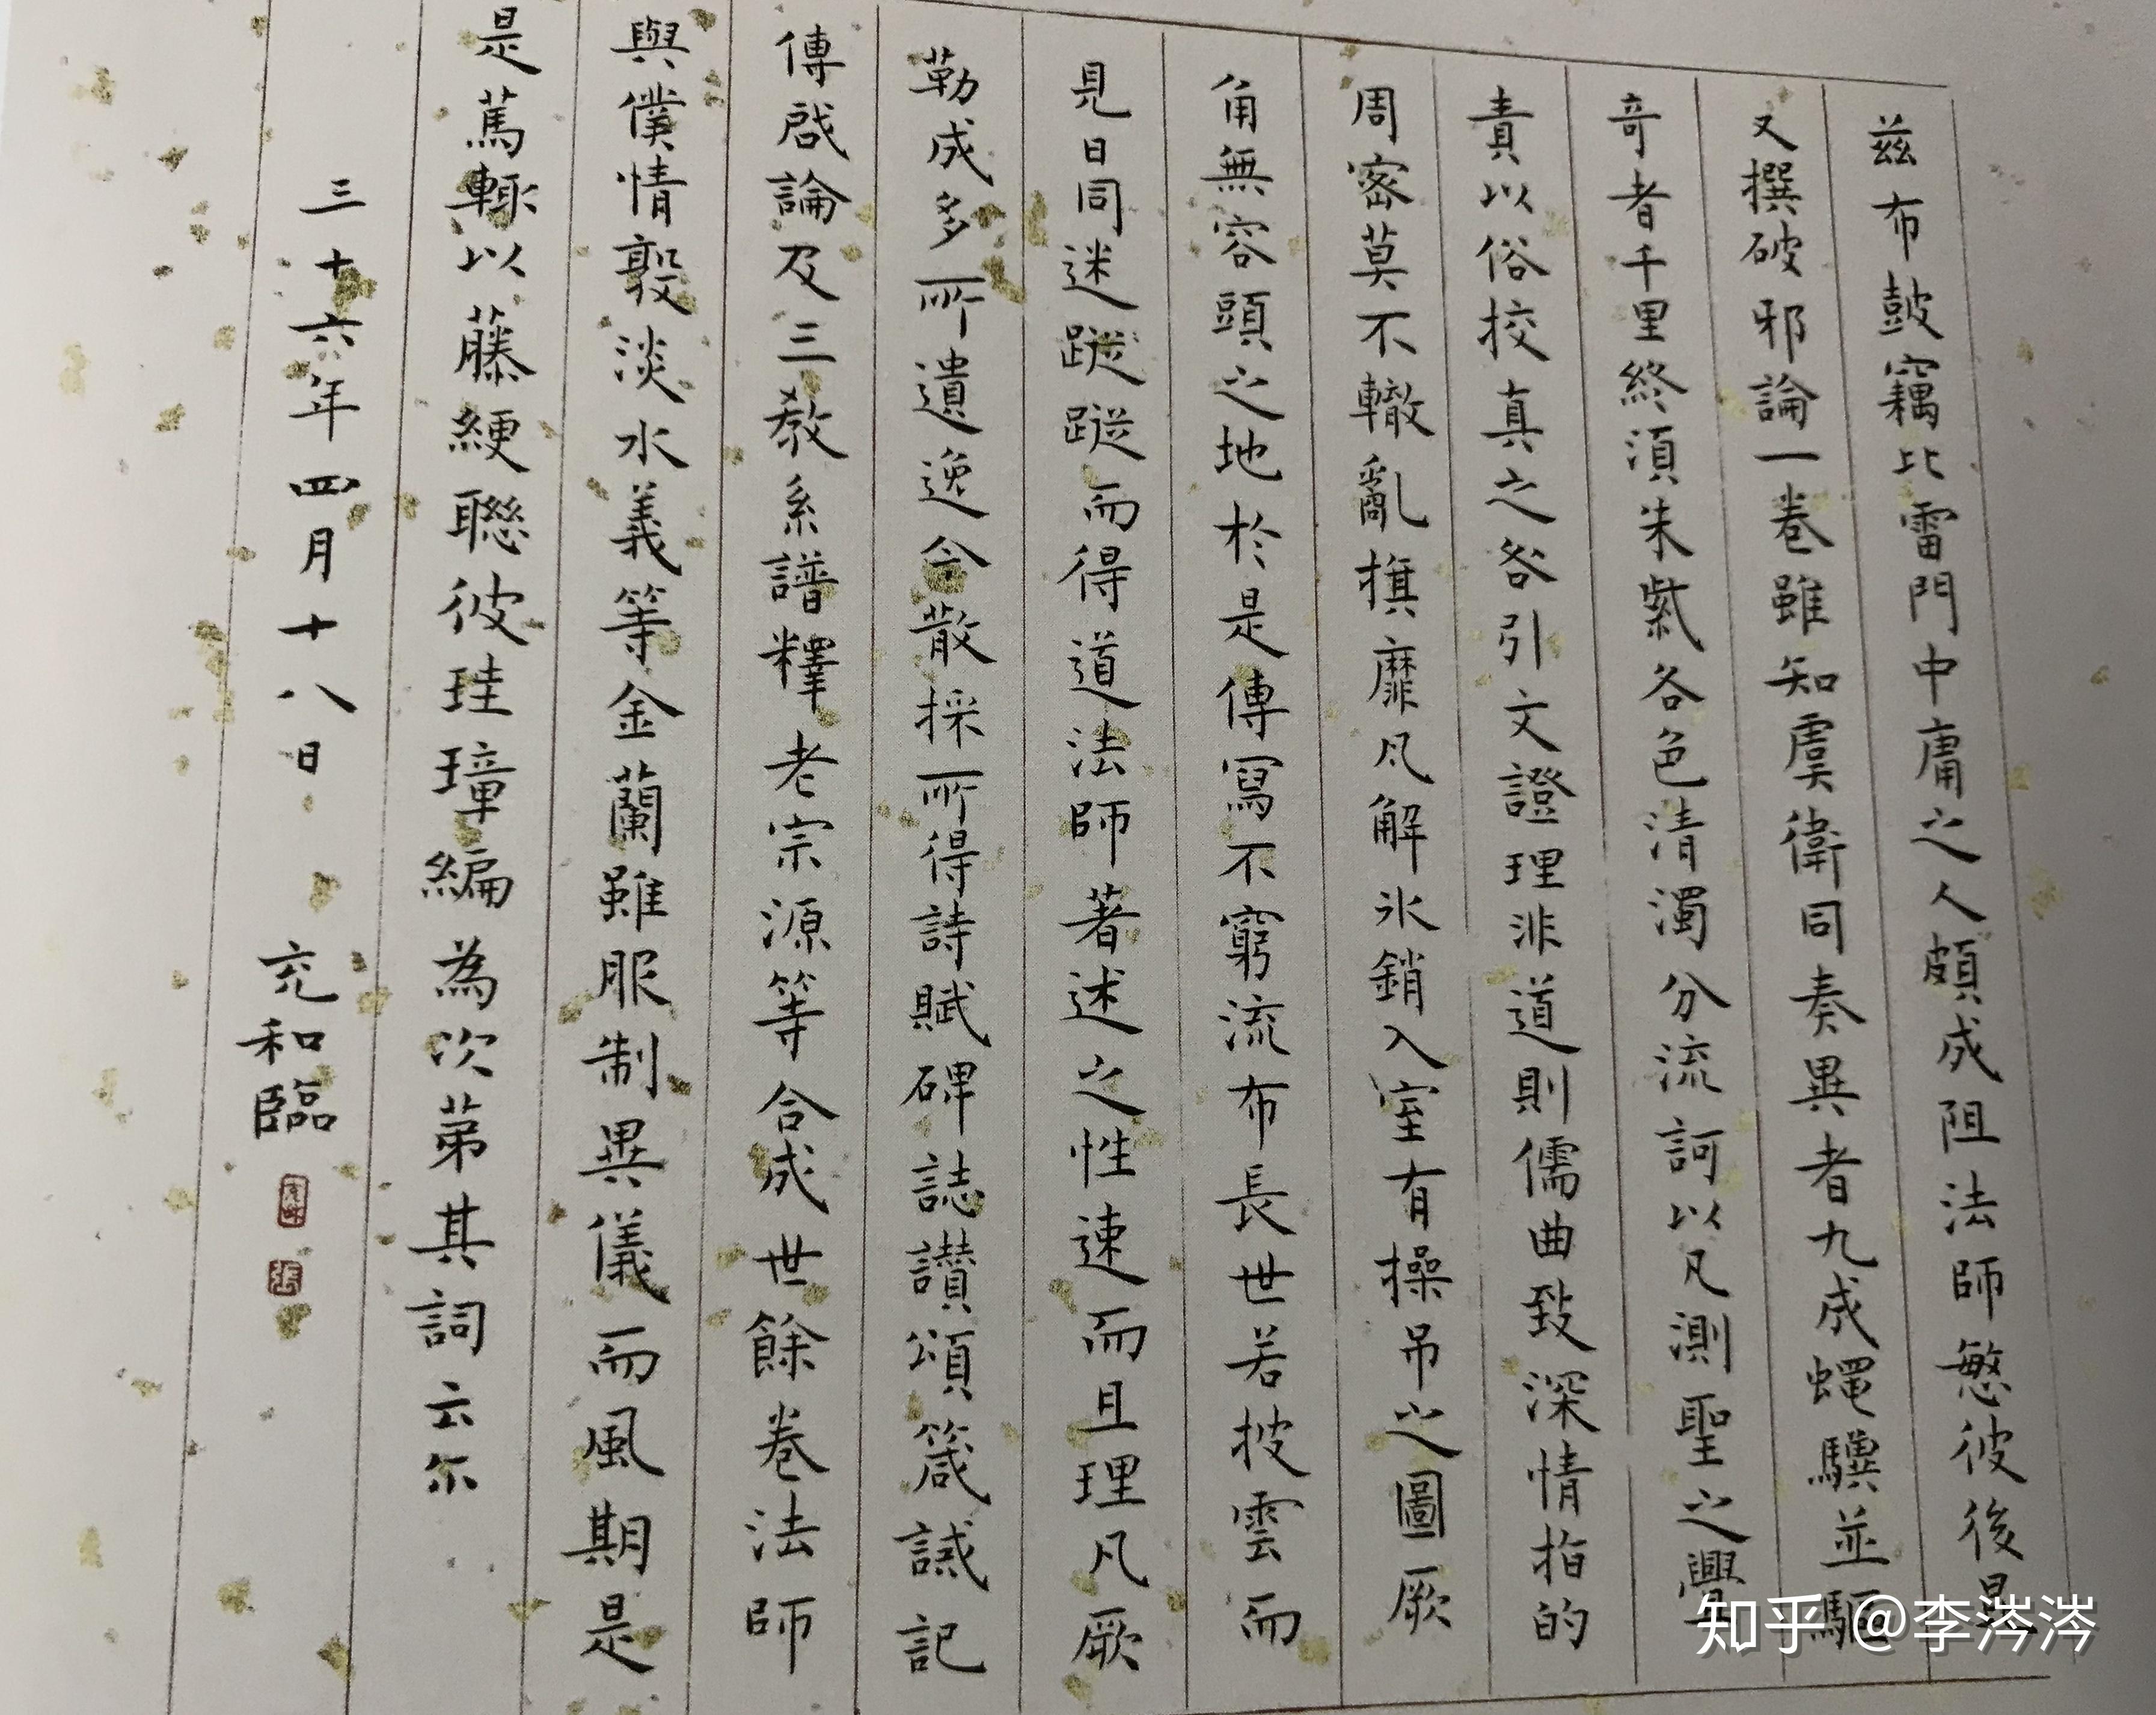 茲布鼓竊比雷門中庸之人頗成阻法師愍彼後昆
又撰破邪論一卷雖知虞衛同奏異者九成蠅驥並驅
奇者千里終須朱紫各色清濁分流訶以凡測聖之舋
責以俗挍真之咎引文證理非道則儒曲致深情指的
周密莫不轍亂旗靡瓦解氷銷入室有操吊之圖厥
角無容頭之地於是傳寫不窮流布長世若披雲而
見日同迷蹤而得道法師著述之性速而且理凡厥
勒成多所遺逸今散採所得詩賦碑誌讃頌箴誡記
傳啟論及三教系譜釋老宗源等合成世餘卷法師
與僕情敦淡水義等金蘭雖服制異儀而風期是
是篤輙以藤綆聯彼珪璋編為次第其詞云尒
三十六年四月十八日 充和臨
充和
張
知乎 @李涔涔